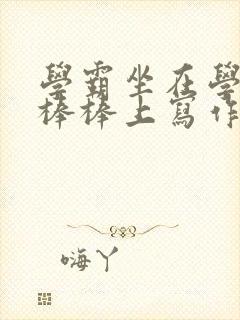 學霸坐在學
棒棒上寫作
嗨丫